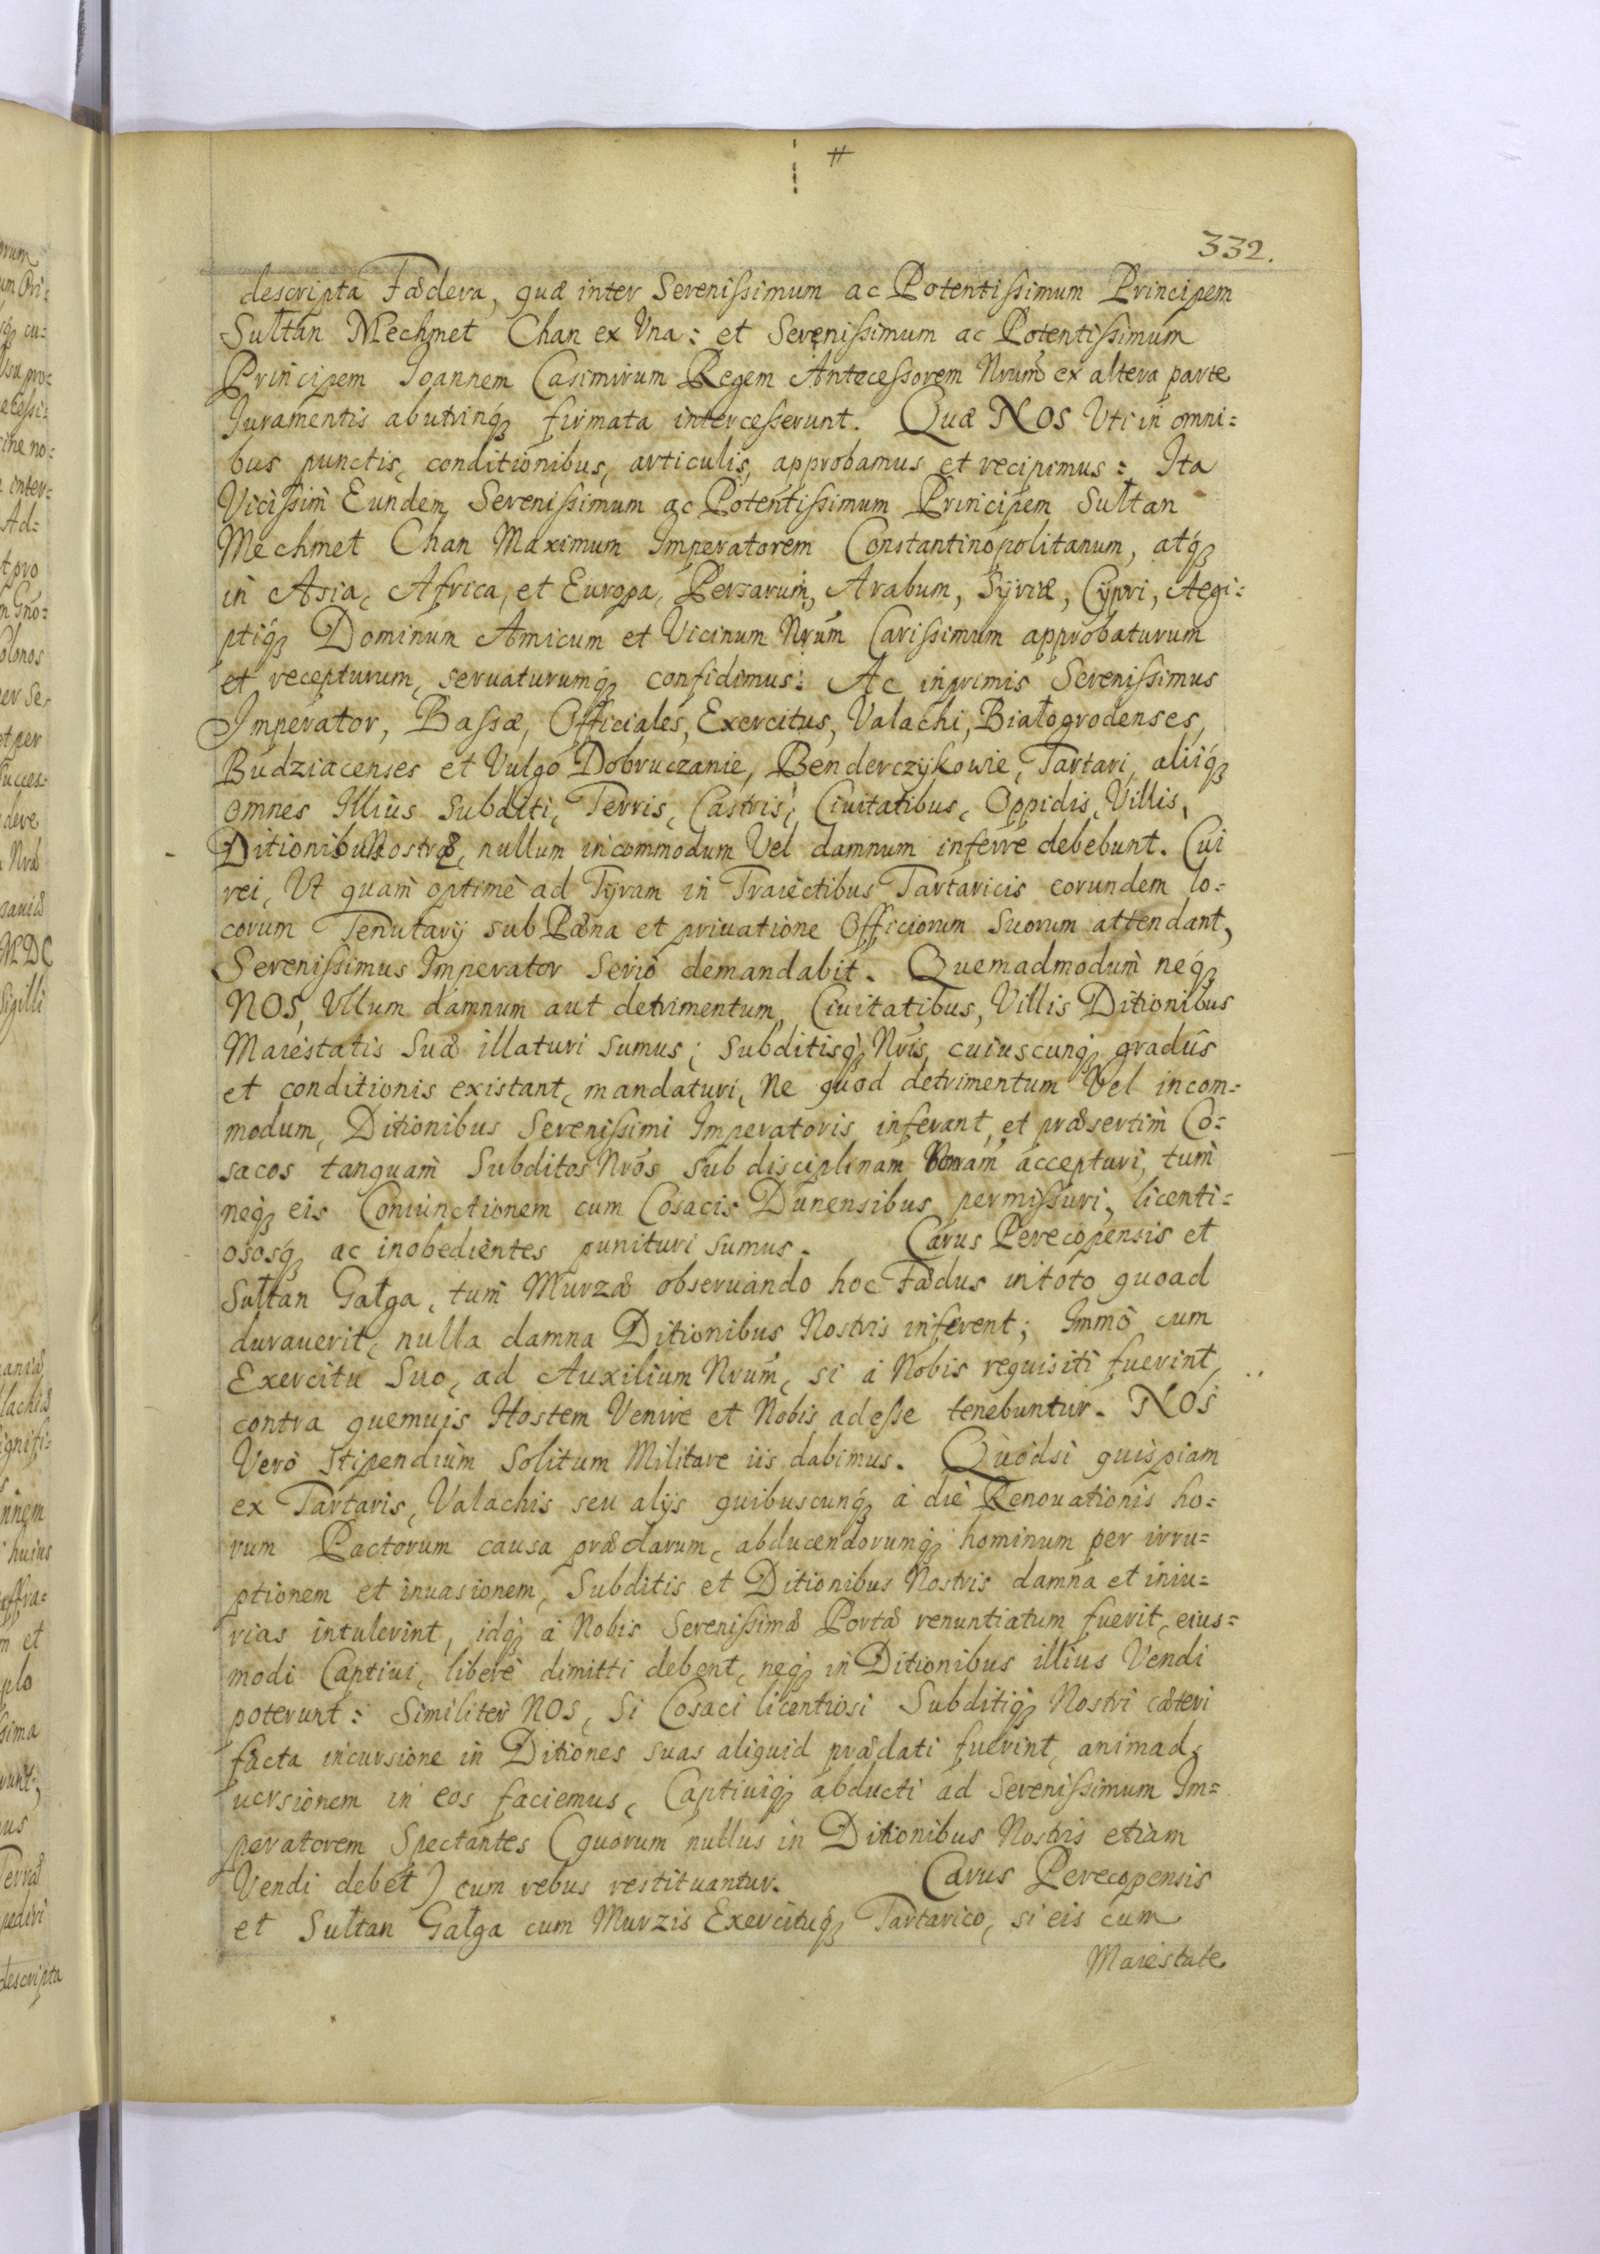 332.
descripta Fædera, quæ inter Serenissimum ac Potentissimum Principem
Sułtan Mechmet Chan ex Vna: et Serenissimum ac Potentissimum
Principem Joannem Casimirum Regem Antecessorem Nrum̄ ex altera parte
Juramentis ab utrinq́ȝ firmata intercesserunt. Quæ NOS Vti in omni=
bus punctis, conditionibus, articulis, approbamus et recipimus: Ita
Vicissim̀ Eundem Serenissimum ac Potentissimum Principem Sułtan
Mechmet Chan Maximum Imperatorem Constantinopolitanum, atq́ȝ
in Asia, Africa, et Europa, Persarum, Arabum, Syriæ, Cypri, Aegi=
ptiq́ȝ Dominum Amicum et Vicinum Nrum̄ Carissimum approbaturum
et recepturum, seruaturumq́ȝ confidimus: Ac inprimis Serenissimus
Imperator, Bassæ, Officiales, Exercitus, Valachi, Białogrodenses,
Budziacenses et Vulgo Dobruczanie, Benderczykowie, Tartari, aliiq́ȝ
omnes Illius Subditi, Terris, Castris, Ciuitatibus, Oppidis, Villis,
Ditionibus Nostræ, nullum incommodum Vel damnum inferre debebunt. Cui
rei, Vt quam̀ optimè ad Tyram in Traiectibus Tartaricis eorundem lo=
corum Tenutarij sub Pæna et priuatione Officiorum Suorum attendant,
Serenissimus Imperator Seriò demandabit. Quemadmodum̀ neq́ȝ
NOS, Vllum damnum aut detrimentum, Ciuitatibus, Villis Ditionibus
Maiestatis Suæ illaturi sumus; Subditisq́ȝ Nrīs cuiuscunq́ȝ gradûs
et conditionis existant, mandaturi, Ne quod detrimentum Vel incom=
modum, Ditionibus Serenissimi Imperatoris inferant, et præsertim̀ Co=
sacos tanquam̀ Subditos Nrōs Sub disciplinam Nram̄ accepturi, tum̀
neq́ȝ eis Coniunctionem cum Cosacis Dunensibus permissuri, licenti=
ososq́ȝ ac inobedientes punituri sumus. Carus Perecopensis et
Sułtan Gałga, tum̀ Murzæ obseruando hoc Fædus in toto quoad
durauerit, nulla damna Ditionibus Nostris inferent; Immò cum
Exercitu Suo, ad Auxilium Nrum̄, si à Nobis requisiti fuerint,
contra quemuis Hostem Venire et Nobis adesse tenebuntur. NOS
Verò Stipendium Solitum Militare iis dabimus. Quòdsi quispiam
ex Tartaris, Valachis seu alijs quibuscunq́ȝ à die Renouationis ho=
rum Pactorum causa prædarum, abducendorumq́ȝ hominum per irru=
ptionem et inuasionem, Subditis et Ditionibus Nostris damna et iniu=
rias intulerint, idq́ȝ à Nobis Serenissimæ Portæ renuntiatum fuerit, eius=
modi Captiui, liberè dimitti debent, neq́ȝ in Ditionibus illius Vendi
poterunt: Similiter NOS, Si Cosaci licentiosi Subditiq́ȝ Nostri cæteri
facta incursione in Ditiones suas aliquid prædati fuerint, animad=
uersionem in eos faciemus, Captiuiq́ȝ abducti ad Serenissimum Im=
peratorem Spectantes (quorum nullus in Ditionibus Nostris etiam
Vendi debet) cum rebus restituantur. Carus Perecopensis
et Sułtan Gałga cum Murzis Exercituq́ȝ Tartarico, si eis cum
Maiestate